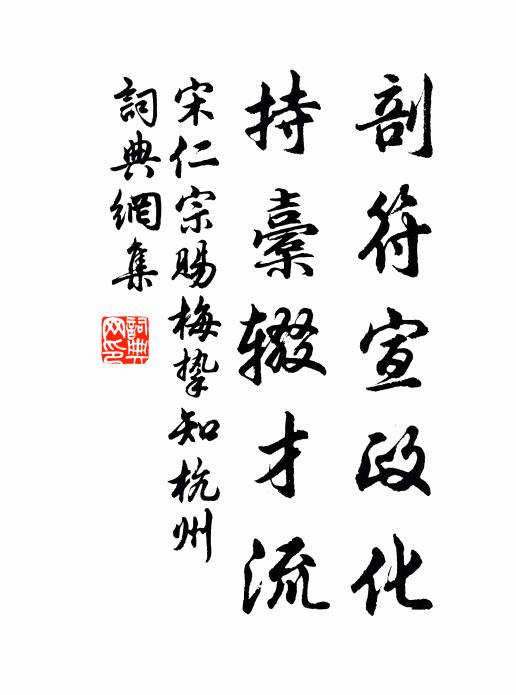 剖符宣政化
持橐辍才流
宋仁宗賜梅摯知杭州
詞典網集
詞典網印